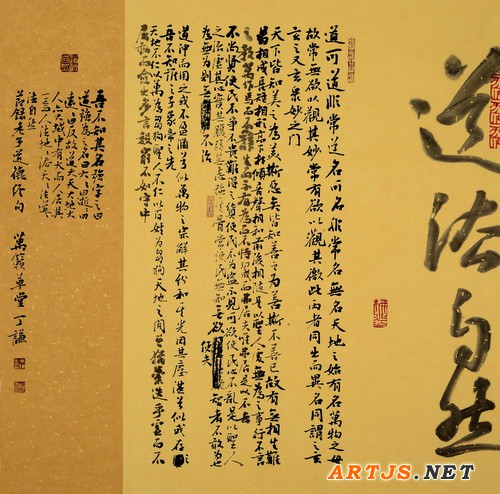 道法自然
道可道非常道名可名非常名無名天地之始有名萬物之母
故常無欲以觀其妙常有欲以觀其徼此兩者同出而異名同謂之玄
玄之又玄衆妙之門
天下皆知美之為美斯惡矣皆知善之為善斯不善已故有無相生難
易相成長短相形高下相傾音聲相和前後相隨是以聖人處無為之事行不言
之教萬物作焉而不辭生而不有為而不恃功成而弗居夫唯弗居是以不去
不尚賢使民不爭不貴難得之貨使民不為盜不見可欲使民心不亂是以聖人
之治虛其心實其腹弱其志強其骨常使民無知無欲使夫智者不敢為也
為無為則無不治
道沖而用之或不盈淵兮似萬物之宗解其紛和其光同其塵湛兮似或存
吾不知誰之子象帝之先
天地不仁以萬物為芻狗聖人不仁以百姓為芻狗天地之間其猶橐籥乎虛而不
屈動而愈出多言數窮不如守中
吾不知其名強字之曰
道強為之名曰大大曰逝逝曰
遠遠曰反故道大天大地大
人亦大域中有四大而人居其
一焉人法地地法天天法道道
法自然
節錄老子道德經句
萬籟草堂丁謙
ARTJS.NET